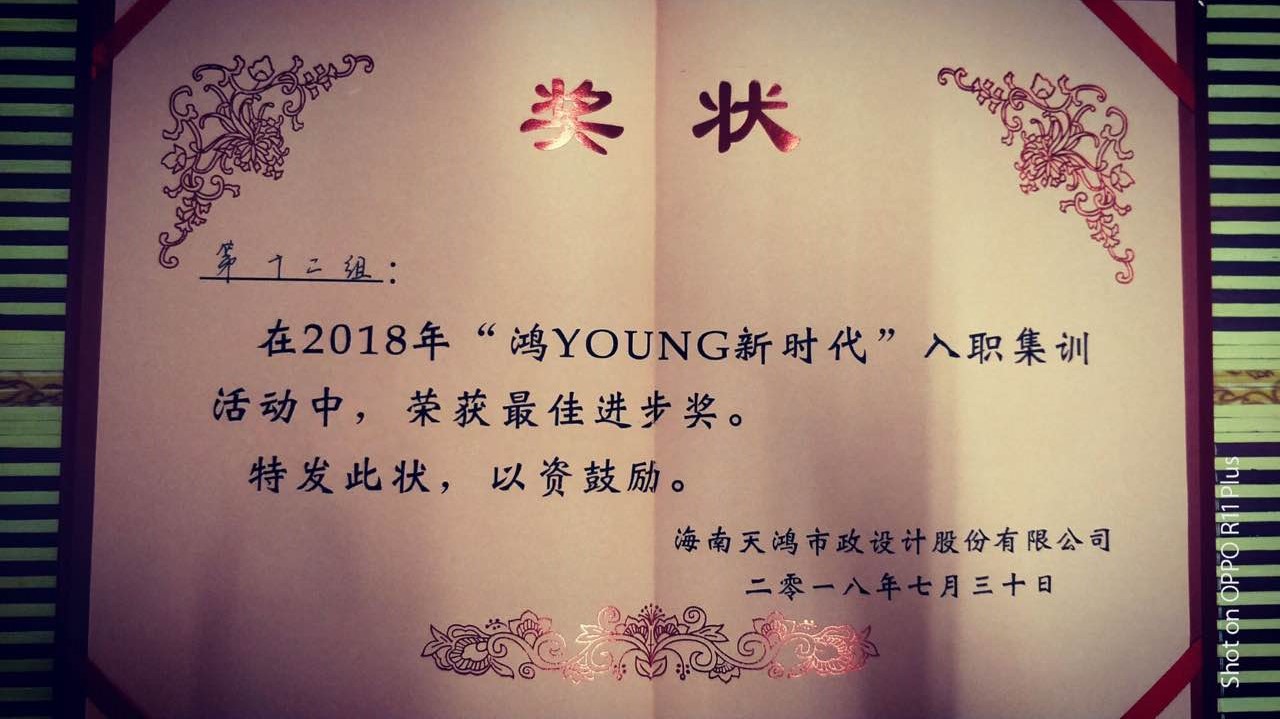 奖状
第十二组：
在2018年“鸿YOUNG新时代”入职集训
活动中，荣获最佳进步奖。
特发此状，以资鼓励。
海南天鸿市政设计股份有限公司
二零一八年七月三十日
Shot on OPPO R11 Plus